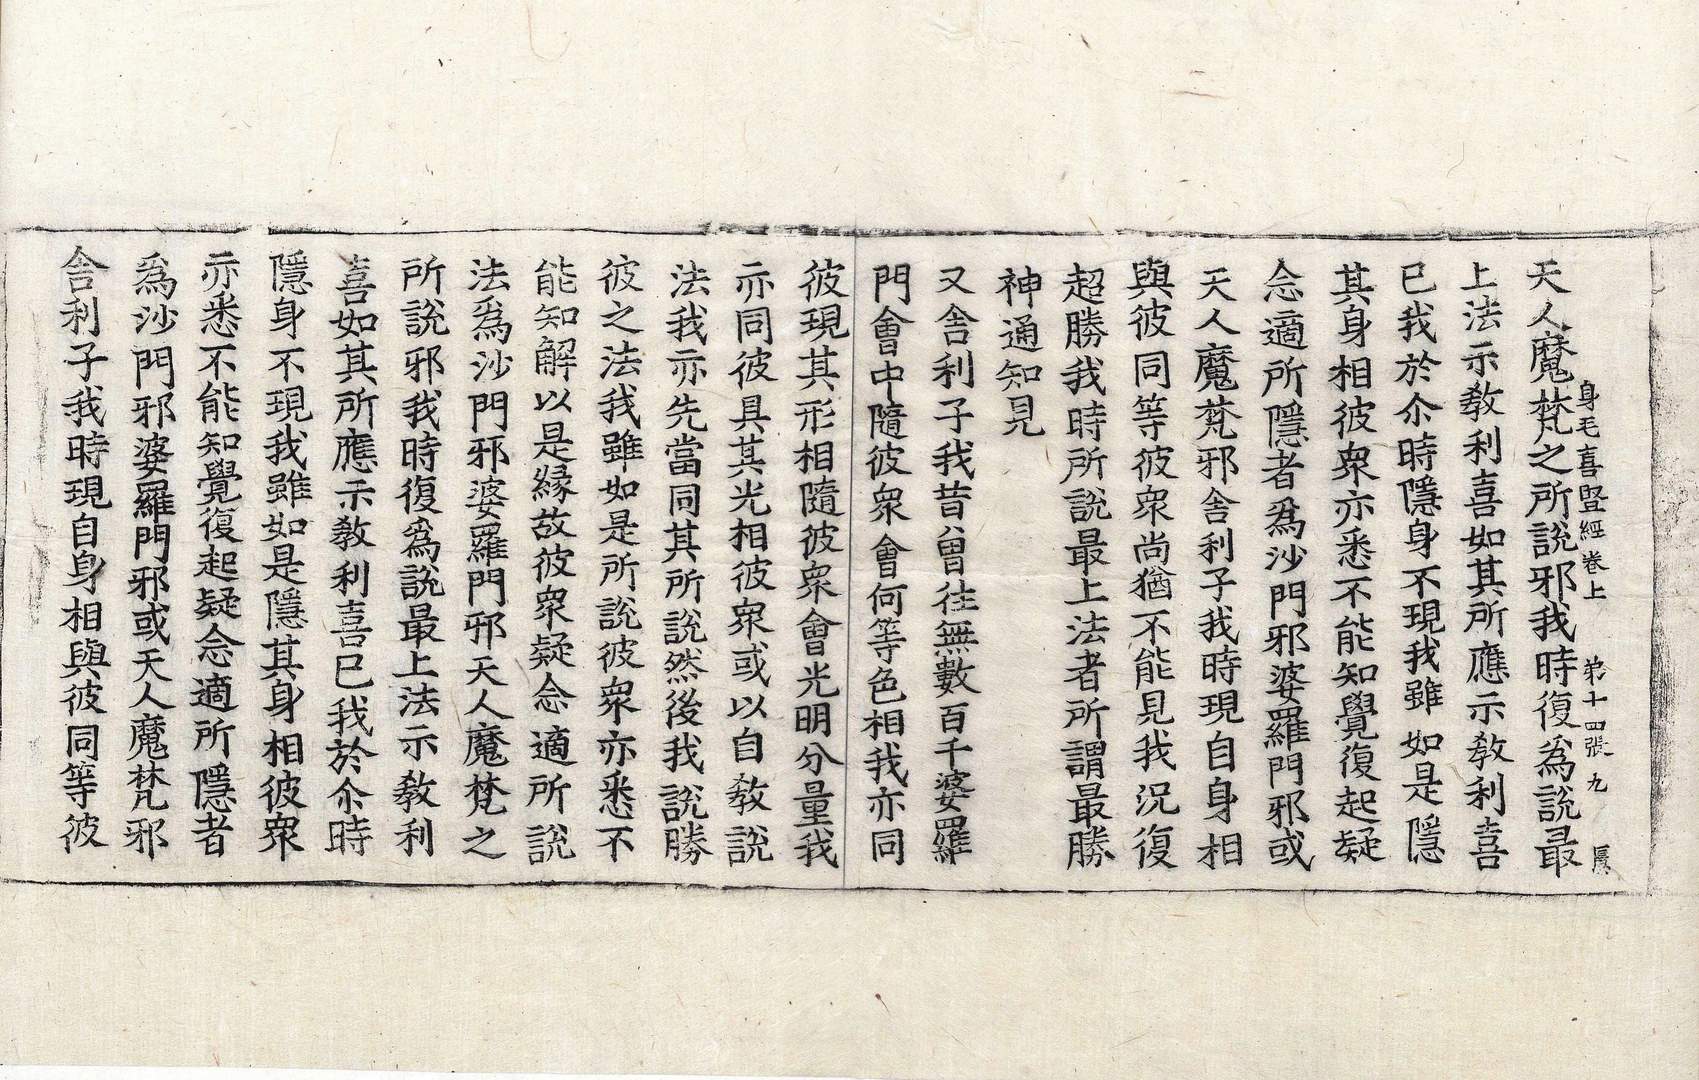 身毛喜竪經卷上 第十四張 九
天人魔梵之所說邪我時復爲說最
上法示敎利喜如其所應示敎利喜
已我於尒時隱身不現我雖如是隱
其身相彼衆亦悉不能知覺復起疑
念適所隱者爲沙門邪婆羅門邪或
天人魔梵邪舍利子我時現自身相
與彼同等彼衆尚猶不能見我況復
超勝我時所說最上法者所謂最勝
神通知見
又舍利子我昔曾往無數百千婆羅
門會中隨彼衆會何等色相我亦同
彼現其形相隨彼衆會光明分量我
亦同彼具其光相彼衆或以自敎說
法我亦先當同其所說然後我說勝
彼之法我雖如是所說彼衆亦悉不
能知解以是緣故彼衆疑念適所說
法爲沙門邪婆羅門邪天人魔梵之
所說邪我時復爲說最上法示敎利
喜如其所應示敎利喜已我於尒時
隱身不現我雖如是隱其身相彼衆
亦悉不能知覺復起疑念適所隱者
爲沙門邪婆羅門邪或天人魔梵邪
舍利子我時現自身相與彼同等彼